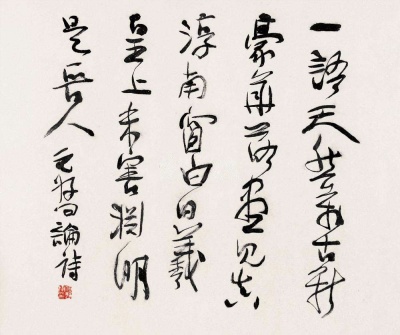 一語天然萬古新
豪華落盡見真
淳南窗白日羲
皇上未害淵明
是晉人 元好問論詩